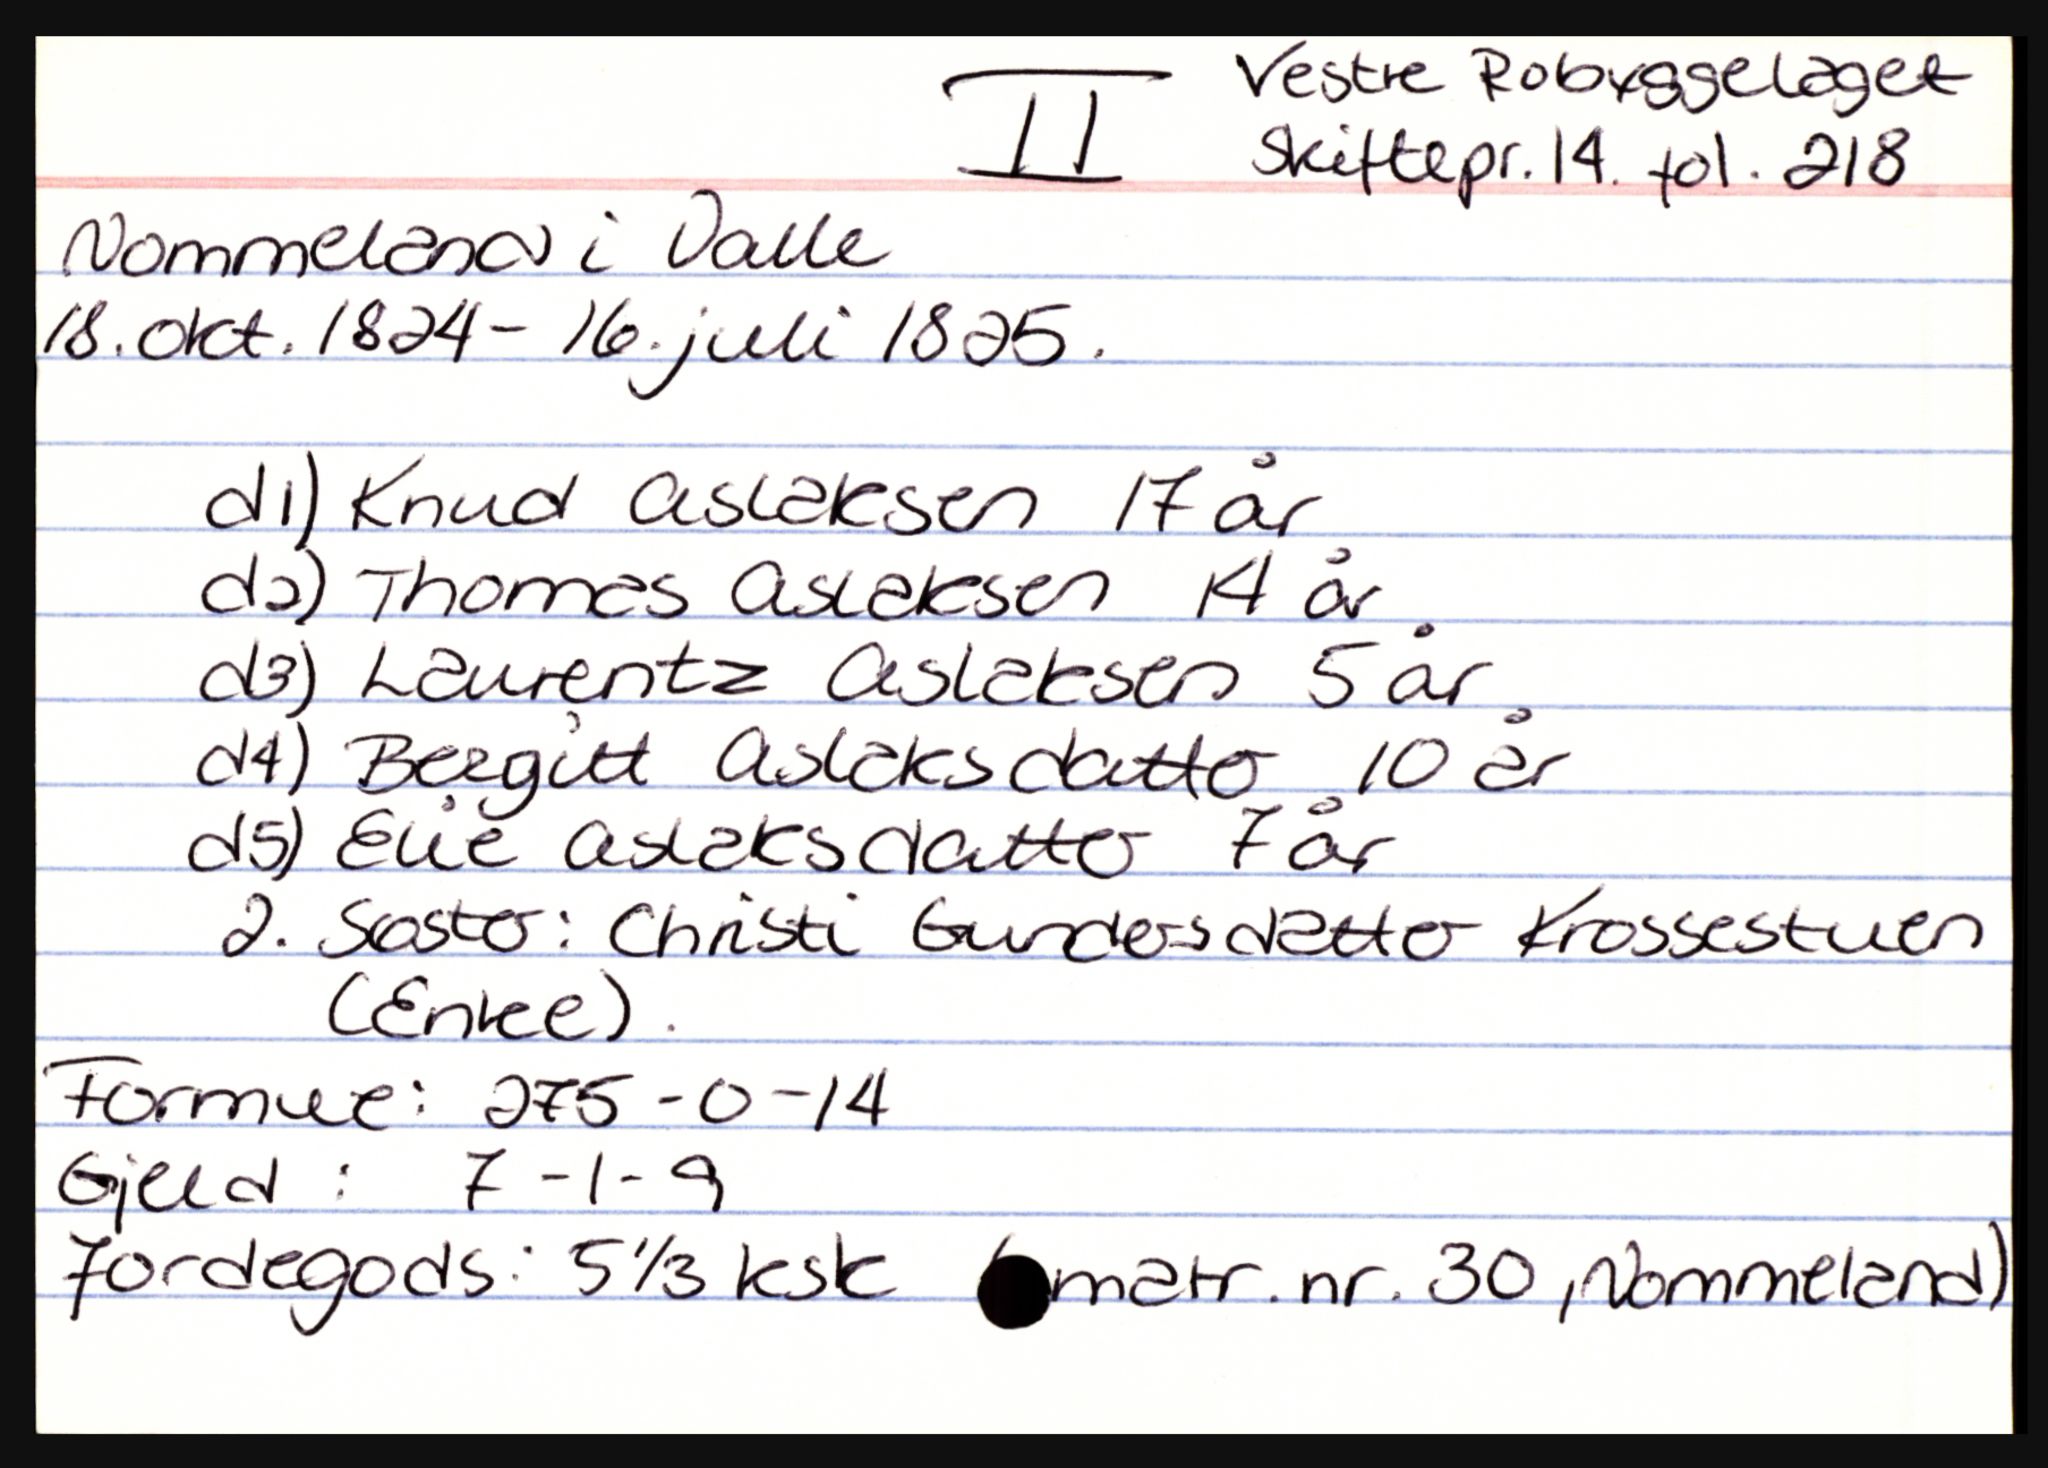 II
Vestre Robyggelaget
Skiftepr. 14. fol. 218
Nommeland i Valle
18. okt. 1824 - 16. juli 1825.
d1) Knud Aslaksen 17 år
d2) Thomas Aslaksen 14 år
d3) Laurentz Aslaksen 5 år
d4) Bergitt Aslaksdatter 10 år
d5) Elie Aslaksdatter 7 år
2. Søster: Christi Gundersdatter Krossestuen
(Enke).
Formue: 275 - 0 - 14
Gjeld : 7 - 1 - 9
Jordegods: 5 1/3 ksk (matr. nr. 30, Nommeland)